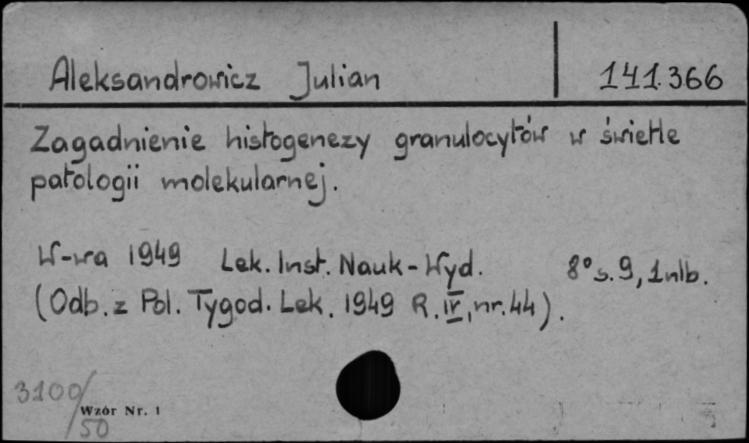 Aleksandrowicz Julian 141.366
Zagadnienie histogenezy granulocytów w świetle
patologii molekularnej.
W-wa 1949 Lek. Inst. Nauk-Wyd. 8° s. 9, 1 nlb.
(Odb. z Pol. Tygod. Lek. 1949 R. IV, nr. 44).
3100/50
Wzór Nr. 1